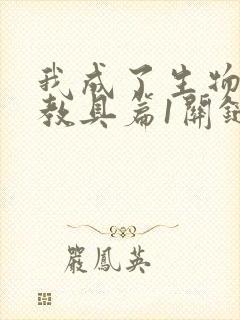 我成了生物
教具篇1關鍵
嚴鳳英